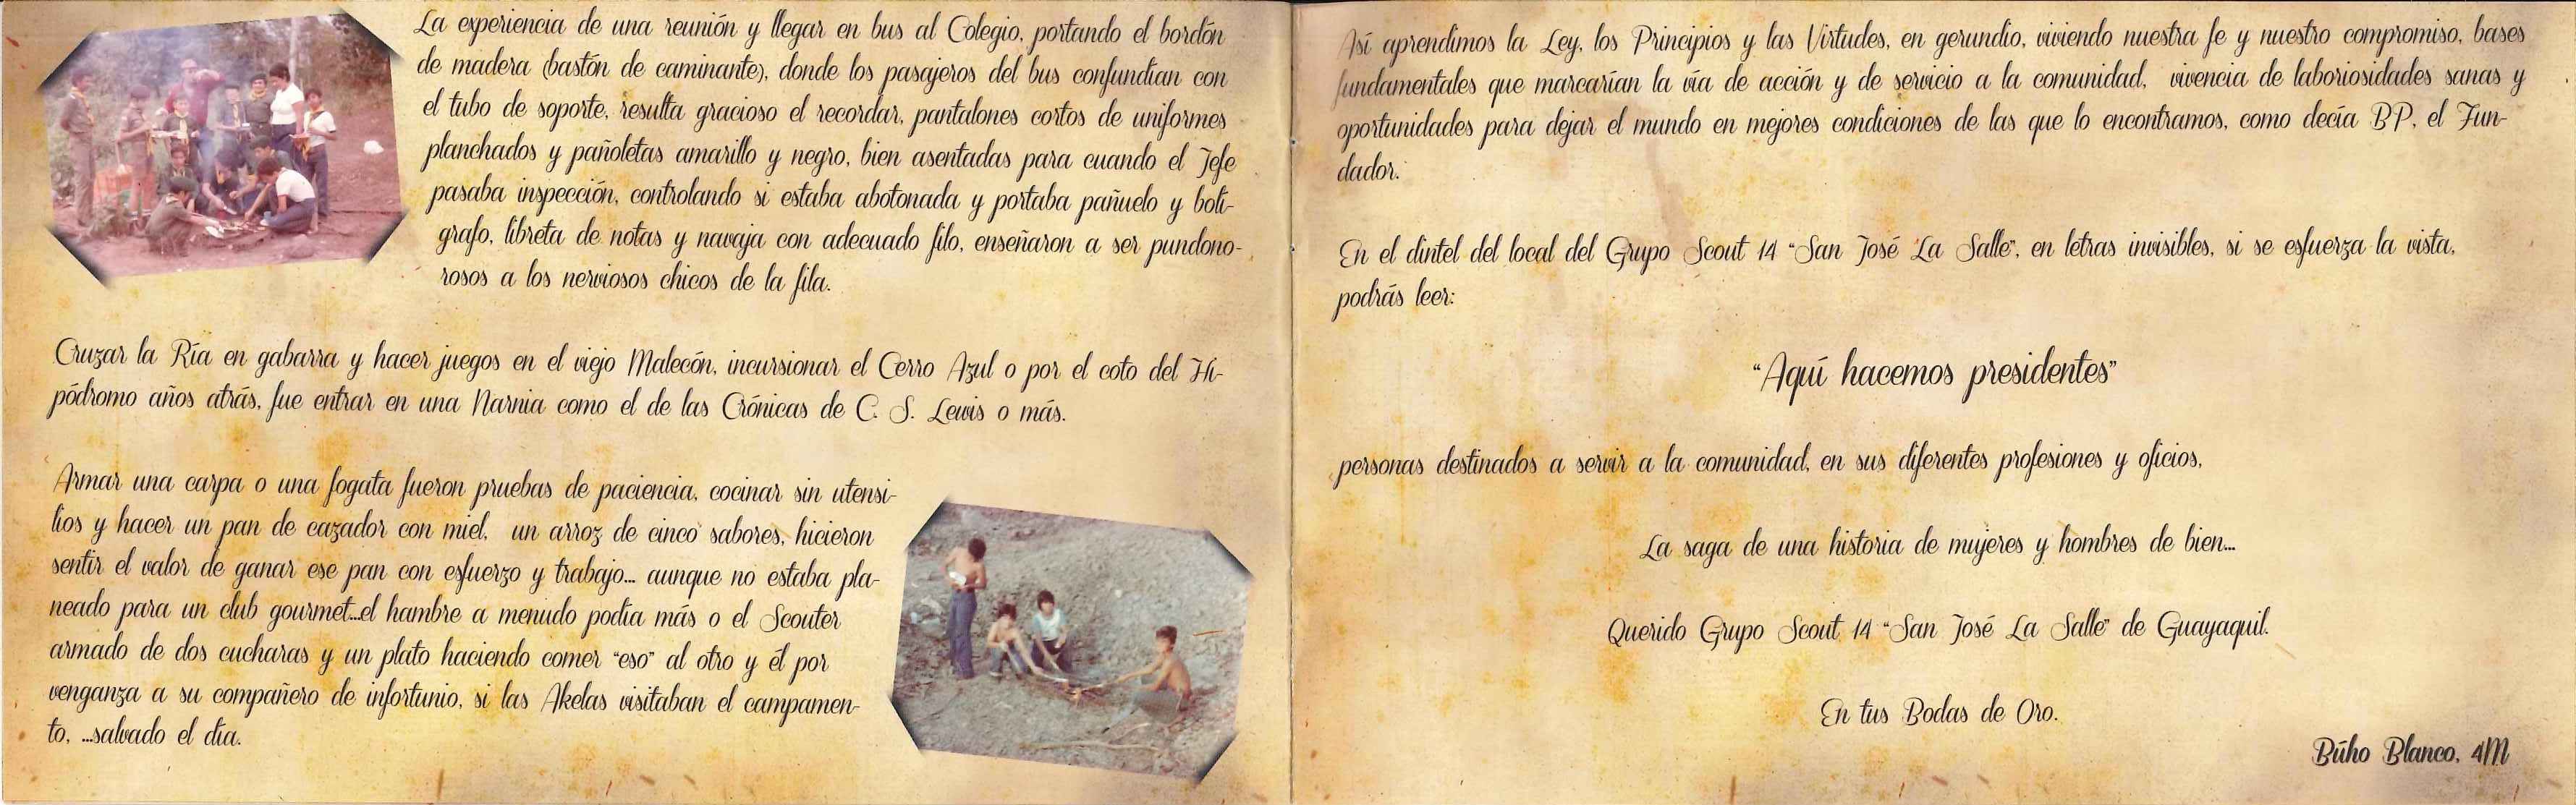 La experiencia de una reunión y llegar en bus al Colegio, portando el bordón
de madera (bastón de caminante), donde los pasajeros del bus confundían con
el tubo de soporte, resulta gracioso el recordar, pantalones cortos de uniformes
planchados y pañoletas amarillo y negro, bien asentadas para cuando el Jefe
pasaba inspección, controlando si estaba abotonada y portaba pañuelo y bolí-
grafo, libreta de notas y navaja con adecuado filo, enseñaron a ser pundono-
rosos a los nerviosos chicos de la fila.
Cruzar la Ría en gabarra y hacer juegos en el viejo Malecón, incursionar el Cerro Azul o por el coto del Hi-
pódromo años atrás, fue entrar en una Narnia como el de las Crónicas de C. S. Lewis o más.
Armar una carpa o una fogata fueron pruebas de paciencia, cocinar sin utensi-
lios y hacer un pan de cazador con miel, un arroz de cinco sabores, hicieron
sentir el valor de ganar ese pan con esfuerzo y trabajo... aunque no estaba pla-
neado para un club gourmet...el hambre a menudo podía más o el Scouter
armado de dos cucharas y un plato haciendo comer “eso” al otro y él por
venganza a su compañero de infortunio, si las Akelas visitaban el campamen-
to, ...salvado el día.
Así aprendimos la Ley, los Principios y las Virtudes, en gerundio, viviendo nuestra fe y nuestro compromiso, bases
fundamentales que marcarían la vía de acción y de servicio a la comunidad, vivencia de laboriosidades sanas y
oportunidades para dejar el mundo en mejores condiciones de las que lo encontramos, como decía BP, el Fun-
dador.
En el dintel del local del Grupo Scout 14 “San José La Salle”, en letras invisibles, si se esfuerza la vista,
podrás leer:
“Aquí hacemos presidentes”
personas destinados a servir a la comunidad, en sus diferentes profesiones y oficios,
La saga de una historia de mujeres y hombres de bien...
Querido Grupo Scout 14 “San José La Salle” de Guayaquil.
En tus Bodas de Oro.
Búho Blanco, 4M